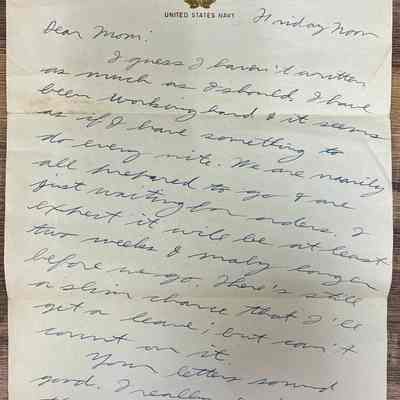 UNITED STATES NAVY
Friday Noon
Dear Mom:
I guess I haven't written
as much as I should. I have
been working hard & it seems
as if I have something to
do every nite. We are nearly
all prepared to go & are
just waiting for orders. I
expect it will be at least
two weeks & maby longer
before we go. There's still
a slim chance that I'll
get a leave; but can't
count on it.
Your letters sound
good. I really